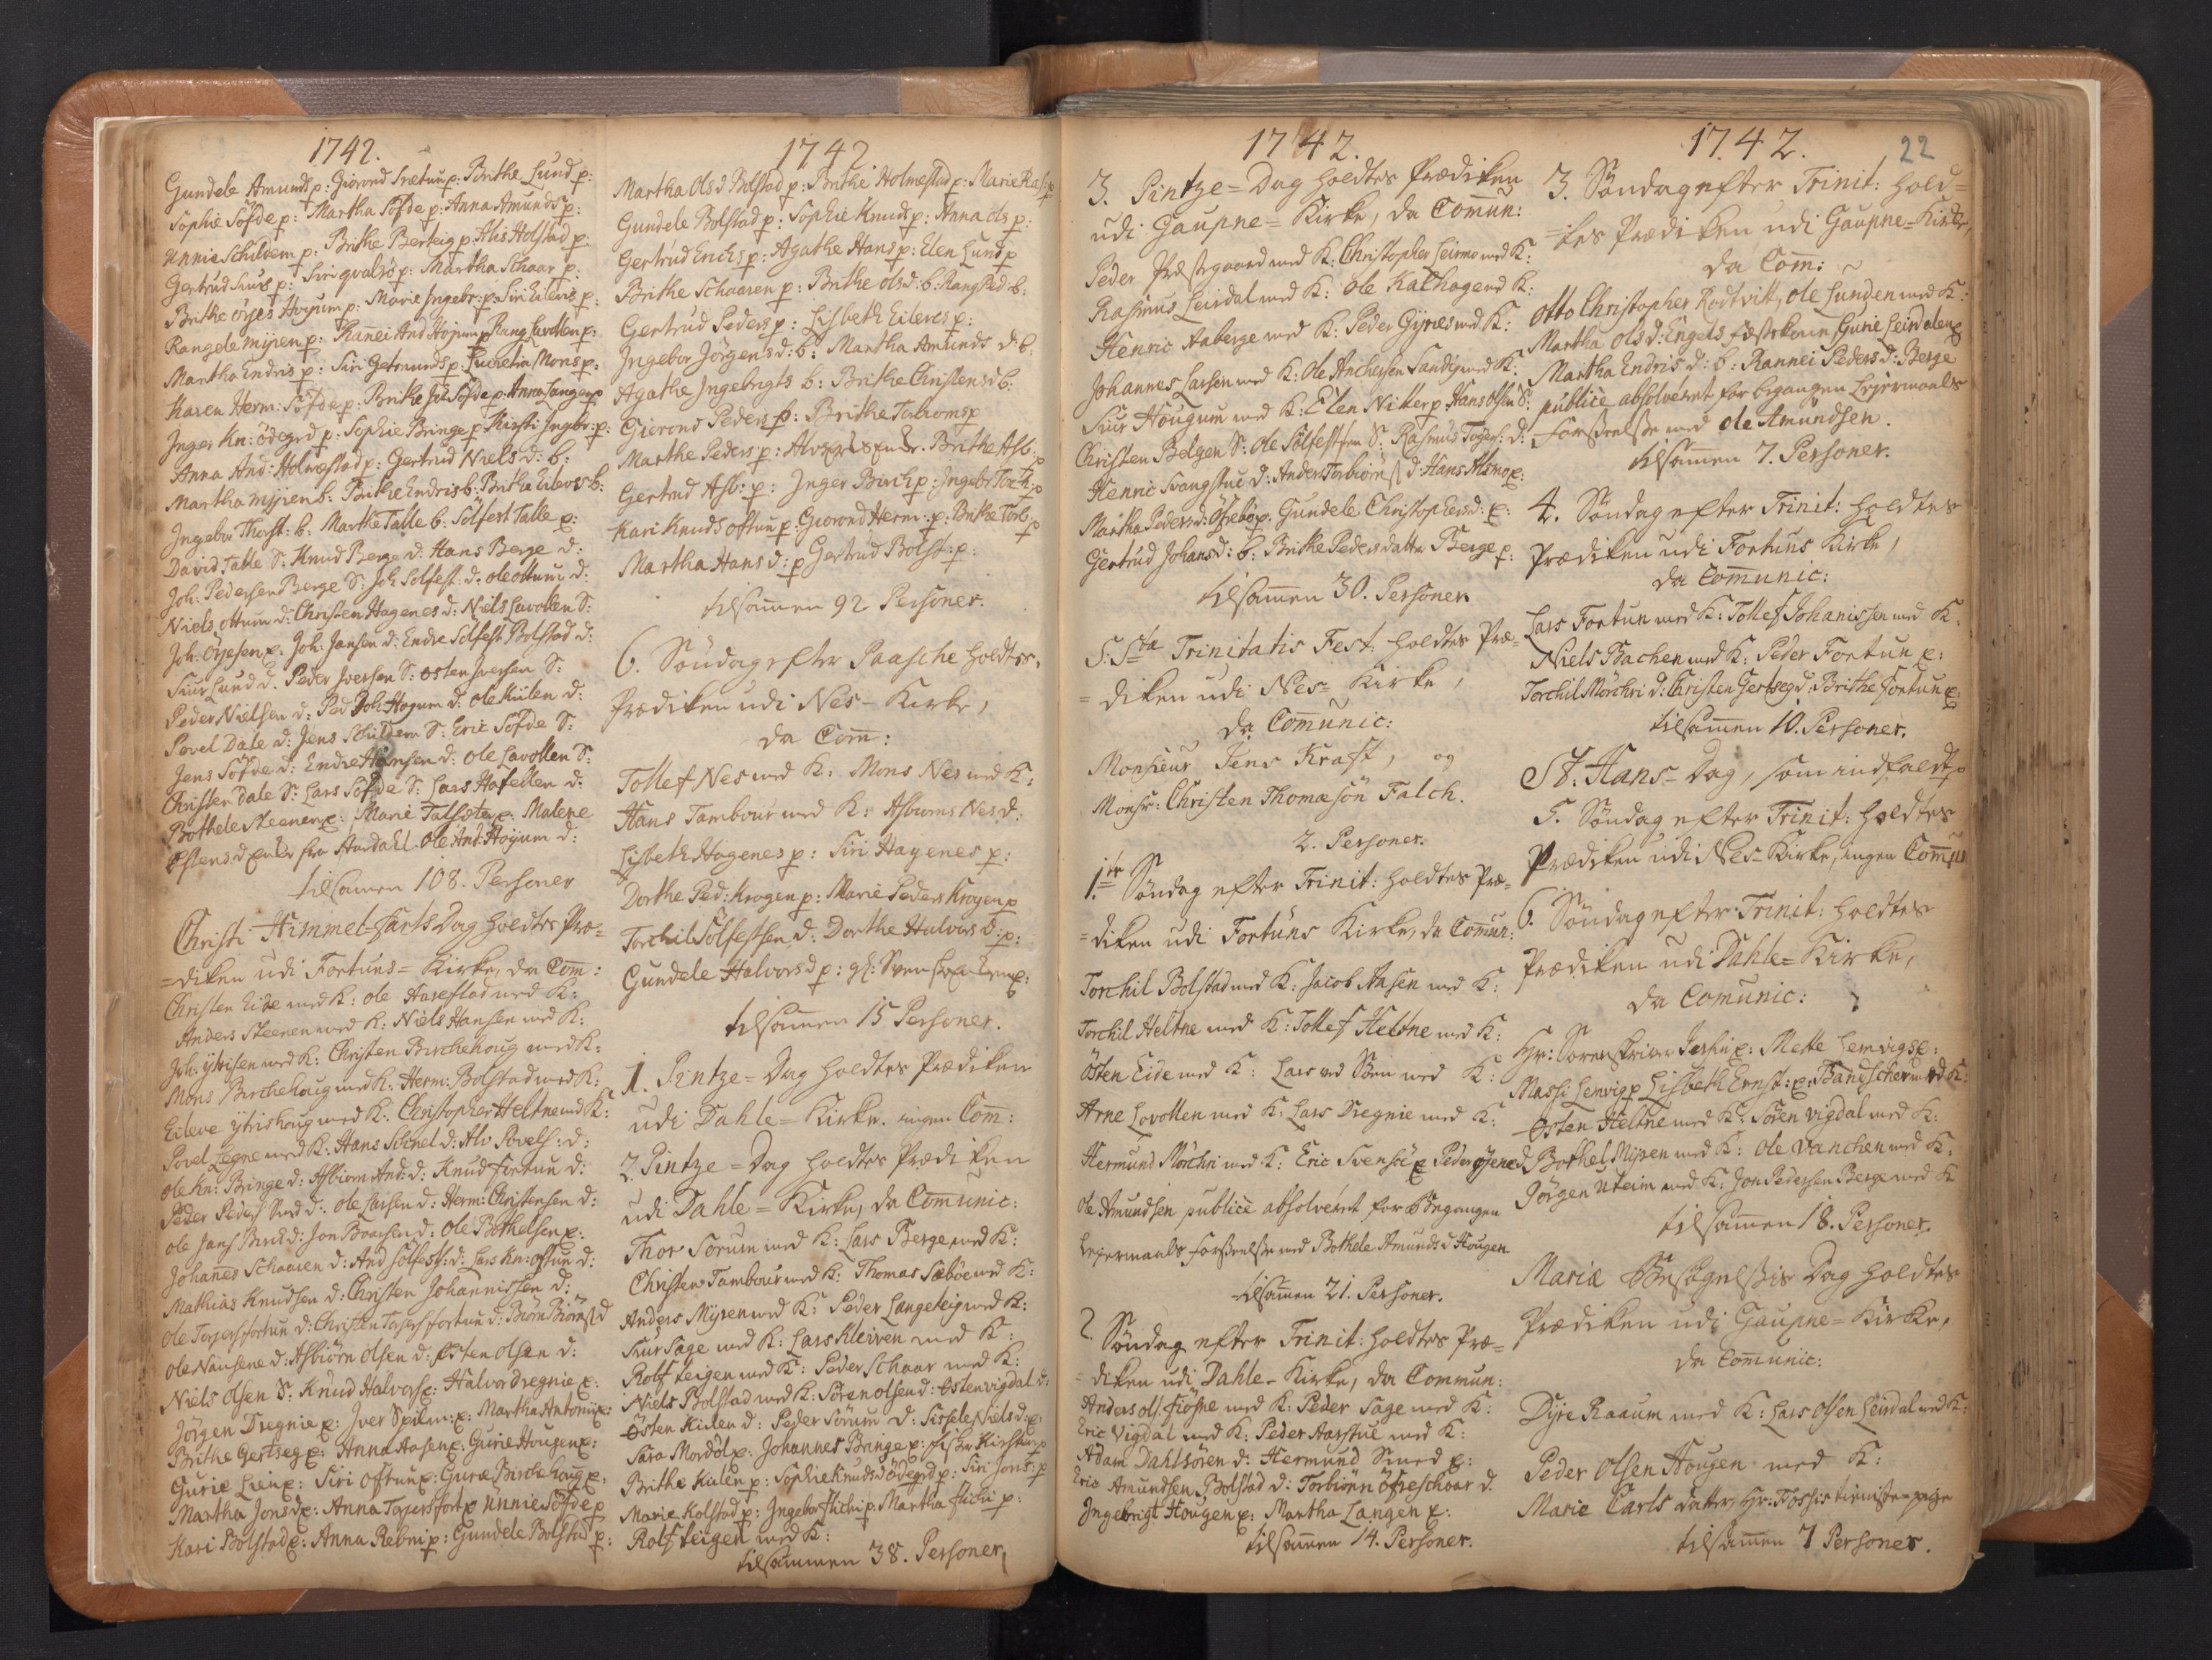 1742.
Gundele Amunds p: Giorond Trætun p: Brithe Lund p:
Sophie Söfde p: Martha Söfde p: Anna Amunds p:
Unnie Schilvem p: Brithe Berteig p: Alis Holstad p:
Gertrud Siurs p: Siri qvalsö p: Martha Schaar p:
Brithe öyes Høyum p: Marie Ingebr: p: Siri Eilevs p:
Rangele mijren p: Rannei And Høyum p Rang Lavollen p:
Martha Endris p: Siri Getmunds p: Lucretia Mons p:
Karen Herm: Söfde p: Brithe Joh Söfde p: Anna Langen p
Inger Kn: ödegrd p: Sophie Bringe p: Kirsti Ingebr: p:
Anna And: Holmestad p: Gertrud Niels d: b:
Martha mijren b: Brithe Endris b: Britha Eilevs b:
Ingebor Thorst: b: Marthe Talle b: Solfest Talle p:
David Talle S: Knud Berge d: Hans Berge d:
Joh: Pedersen Berge S: Joh Solfest: d: ole ottum d:
Niels ottum d: Christen Hagenes d: Niels Lavollen S:
Joh: Öyesen p: Joh: Jansen d: Endre Solfest Bolstad d:
Siur Lund d. Peder Iversen S: osten Iversen S:
Peder Nielsen d: Ped Joh Høyum d: ole Kiilen d:
Povel Dale d: Jens Schildem S: Eric Söfde S:
Jens Söfde d: Endre Hansen d: ole Lavollen S:
Christen Dale S: Lars Söfde S: Lars Hafellen d:
Bothele Steenen p: Marie Talsæte p: Malene
Østens d Enke fra Aardahl. Ole And: Høyum d:
tilsamen 108. Personer
Christi Himmel-farts Dag holdtes Præ=
=diken udi Fortuns= Kirke, da Com:
Christen Eide med K: ole Aasestad med K:
Anders Steenen med K: Niels Hansen med K:
Joh: ytrisen med K: Christen Birchehoug med K:
Mons Birchehoug med K: Herm: Bolstad med K:
Eileve ytrishoug med K: Christopher Heltne med K:
Povel Legne med K: Hans Schnel d: Alv Povels: d:
ole Kn: Bringe d: Asbiørn And: d: Knud fortun d:
Peder Peders Svd d: ole Larsen d: Herm: Christensen d:
ole Jans Birch d: Jon Boasen d: ole Bothelsen p:
Johannes Schaaren d: And Solfests: d: Lars Kn: oftun d:
Mathias Knudsen d: Christen Johannissen d:
ole Torgers fortun d: Christen Torgers fortun d: Biörn Biörns d
ole Nansene d: Asbiörn Olsen d: Østen olsen d:
Niels Olsen S: Knud Halvors p: Halvor dregnie p:
Jörgen Dregnie p: Iver Spilm: p: Martha Antoni p:
Brithe Gertseg p: Anna Aasen p: Gurie Hougen p:
Gurie Lien p: Siri oftun p: Guræ Birchehoug p:
Martha Jons d p: Anna Torgers fort p Unnie Söfde p
Kari Bolstad p: Anna Rebni p: Gundele Bolstad p:
1742
Martha Olsd Bolstad p: Brithe Holmestad p: Marie Ras: p
Gundele Bolstad p: Sophie Knuds p: Anna ols p:
Gertrud Erichs p: Agathe Hans p: Elen Lund p
Brithe Schaaren p: Brithe olsd: b: Rang Ped: b:
Gertrud Peders p: Lisbeth Eilevs p:
Ingebor Jörgens d: b: Martha Amunds d: b:
Agathe Ingebrigts b: Brithe Christens d b:
Giorond Peders p: Brithe Torbiorns p
Marthe Peders p: Alvers Enke. Brithe Asb: p
Gertrud Asb: p: Inger Birch p: Ingebr Torch: p
Kari Knuds oftun p: Giorond Herm: p: Brithe Torb p
Martha Hans d: p Gertrud Bolst: p:
tilsamen 92 Personer.
6. Söndag efter Paasche holdtes
Prædiken udi Nes- Kirke,
da Com:
Tollef Nes med K: Mons Nes med K:
Hans Tambour med K: Asbiorns Nes d:
Lisbeth Hagenes p: Siri Hagenes p:
Dorthe Ped: Krogen p: Marie Peders Krogen p
Torchil Solfestsen d: Dorthe Halvors d: p:
Gundele Halvors d p: gl: Sven p:
tilsamen 15 Personer.
1. Pintze= Dag holdtes Prædiken
udi Dahle= Kirke. ingen Com:
2. Pintze= Dag holdtes Prædiken
udi Dahle= Kirke, da Comunic:
Thor Sorum med K: Lars Berge med K:
Christen Tambour med K: Thomas Sæböe med K:
Anders Mijren med K: Peder Langeteig med K:
Siur Sage med K: Lars Kleiven med K:
Rolf teigen med K: Peder Schaar med K:
Niels Bolstad med K: Sören olsen d: Østen vigdal d:
Østen Kiilen d: Peder Sörum d: Sissele Niels d: p:
Sara Mordöl p: Johannes Bringe p: Kirsten p
Brithe Kiilen p: Sophie Knudsd ödegrd p: Siri Jons: p
Marie Kolstad p: Ingebor flichi p: Martha flichi p:
Rolf teigen med K:
tilsammen 38. Personer
1742.
3. Pintze= Dag holdtes Prædiken
udi Gaupne= Kirke, da Comun:
Peder Præstegaard med K: Christopher Leirmo med K:
Rasmus Leirdal med K: ole Kalhagen d K:
Henric Aaberge med K: Peder Gÿnes md K:
Johannes Larsen med K: Ole Anchersen Sandig med K:
Siur Hougum med K: Elen Niter p Hans olsen S:
Christen Bolgen S: Ole Solfestsen S: Rasmus Toger: d:
Henric Svangstue d: Anders Torbiörns d Hans Almo p:
Martha Peders d: Ösrebö p. Gundele Christophersd: p:
Gertrud Johansd: b: Brithe Pedersdatter Berge p:
tilsamen 30. Personer
S: Sta Trinitatis Fest: holdtes Præ=
=diken udi Nes= Kirke,
da Comunic:
Monsieur Jens Kraft, og
Monsr: Christen Thomæsön Falch.
2. Personer.
1te Söndag efter Trinit: holdtes Præ=
=diken udi Fortuns Kirke, da Comun:
Torchil Bolstad med K: Jacob Aasen med K:
Torchil Heltne med K: Tollef Heltne med K:
Östen Eide med K: Lars ved Söen med K:
Arne Lovollen med K: Lars Dregnie med K:
Hermund Mörchri med K: Eric Svensön p Peder öyene d
Ole Amundsen publicè absolveret for Begangen
Lejermaals forseelse med Bothele Amunds d Hougen
tilsamen 21. Personer.
2. Söndag efter Trinit: holdtes Præ=
=diken udi Dahle- Kirke, da Commun:
Anders ols. fiösne med K: Peder Sage med K:
Eric Vigdal med K: Peder Aarstue med K:
Adam Dahlsören d: Hermund Smed p:
Eric Amundsen Bolstad d: Torbiörn öfreschaar d.
Ingebrigt Hougen p: Martha Langen p:
tilsamen 14. Personer.
1742.
22
3. Söndag efter Trinit: hold=
=tes Prædiken udi Gaupne=Kirke,
da Com:
Otto Christopher Rodtvitt, ole Lunden med K:
Martha olsd: Engels Gurie Leirdalen p
Martha Endris d: b: Rannei Peders d: Berge
publice absolveret for begangen Lejermaals
forseelse med ole Amundsen.
tilsamen 7. Personer.
4. Söndag efter Trinit: holdtes
Prædiken udi Fortuns Kirke,
da Comunic:
Lars Fortun med K: Tollef Johanissen med K:
Niels Bachen med K: Peder Fortun p:
Torchil Mörchri d: Christen Gertseg d. Brithe Fortun p:
tilsamen 10. Personer.
St: Hans- Dag, som indfaldt p
5. Söndag efter Trinit: holdtes
Prædiken udi Nes- Kirke, ingen Comun
6. Söndag efter Trinit: holdtes
Prædiken udi Dahle= Kirke,
da Comunic:
Hr: Sorenskriver Leshi p: Mette Lemvigs p:
Massi Lemvig p Lisbeth Ernst: p: Bandscher med K:
Østen Heltne med K: Sören vigdal med K:
Bothel Mijren med K: Ole Vanchen med K:
Jörgen Uteim med K: Jon Pedersen Berge med K
tilsamen 18. Personer.
Mariæ Besögelsis Dag holdtes
Prædiken udi Gaupne= Kirke,
da Comunic:
Dyre Raaum med K: Lars Olsen Leirdal med K:
Peder Olsen Hougen med K:
Marie Carls datter, Hr: Fossis tieniste= pige
tilsamen 7 Personer.